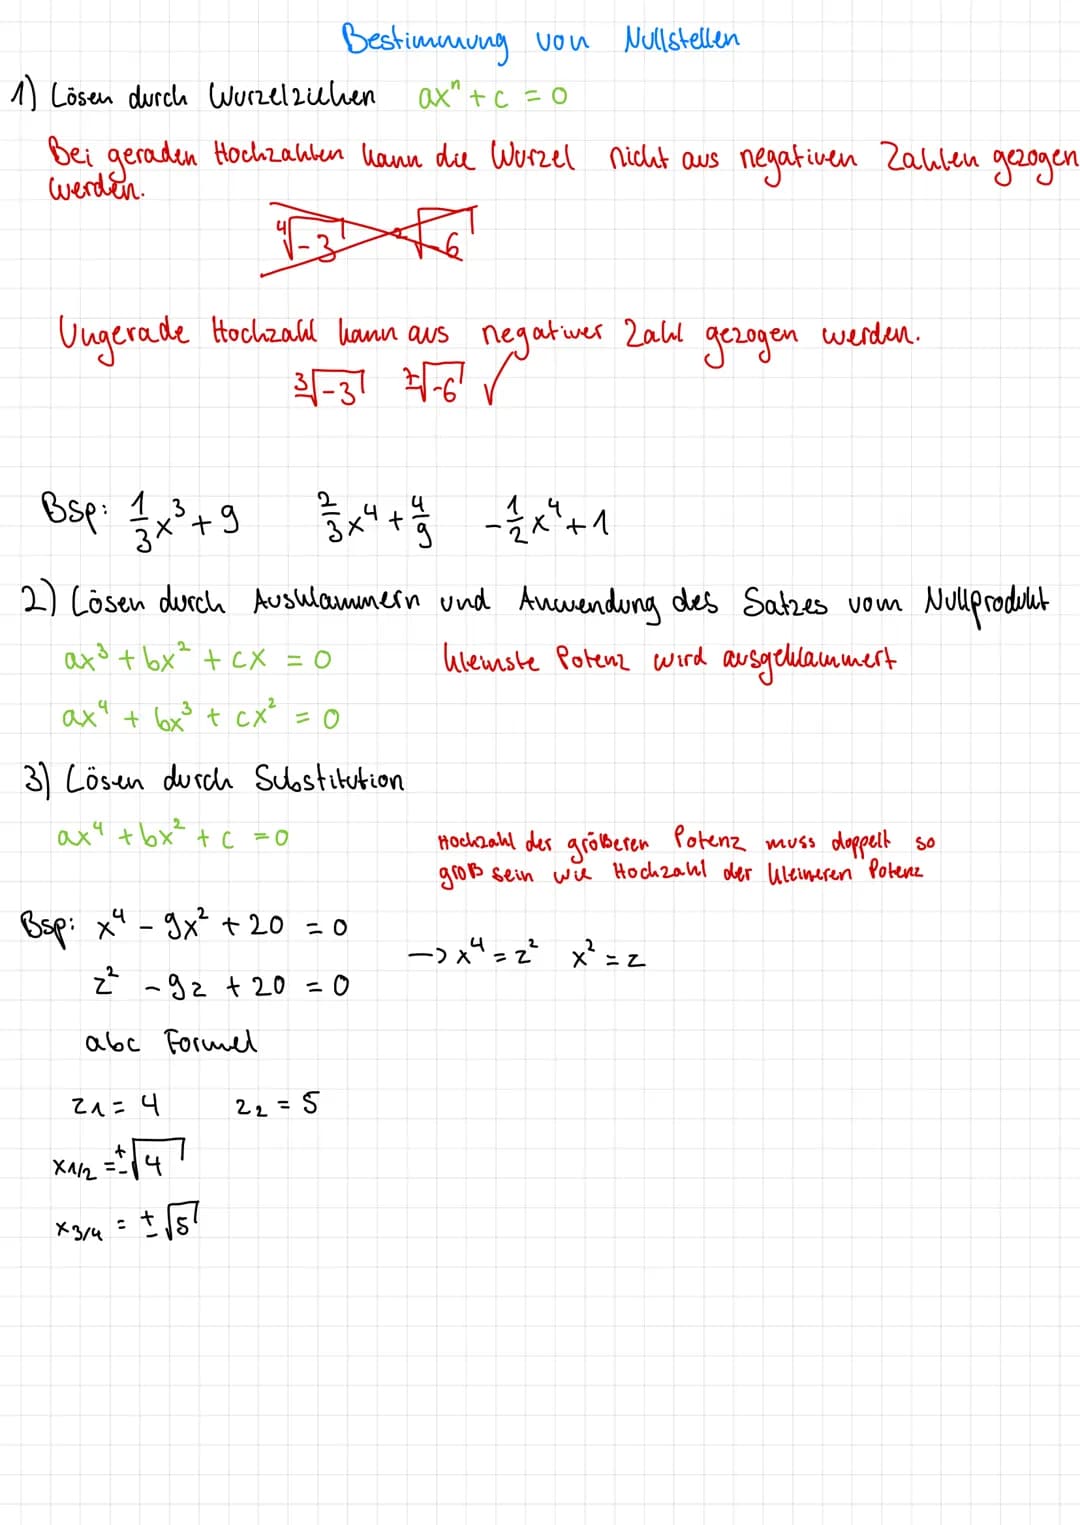 Bestimmung von Nullstellen
1) Lösen durch Wurzelziehen axⁿ + c = 0
Bei geraden Hochzahlen kann die Wurzel nicht aus negativen Zahlen gezogen
werden.
⁴√-3 √-6
Ungerade Hochzahl kann aus negativer Zahl gezogen werden.
³√-3 ⁷√-6 ✓
Bsp: 1/3x³ + 9 2/3x⁴ + 4/9 -1/2x⁴ + 1
2) Lösen durch Ausklammern und Anwendung des Satzes vom Nullprodukt
ax³ + bx² + cx = 0 kleinste Potenz wird ausgeklammert
ax⁴ + bx³ + cx² = 0
3) Lösen durch Substitution
ax⁴ + bx² + c = 0 Hochzahl der größeren Potenz muss doppelt so
groß sein wie Hochzahl der kleineren Potenz
Bsp: x⁴ - 9x² + 20 = 0
—> x⁴ = z² x² = z
z² - 9z + 20 = 0
abc Formel
z₁ = 4 z₂ = 5
x₁/₂ = ±√4
x₃/₄ = ±√5